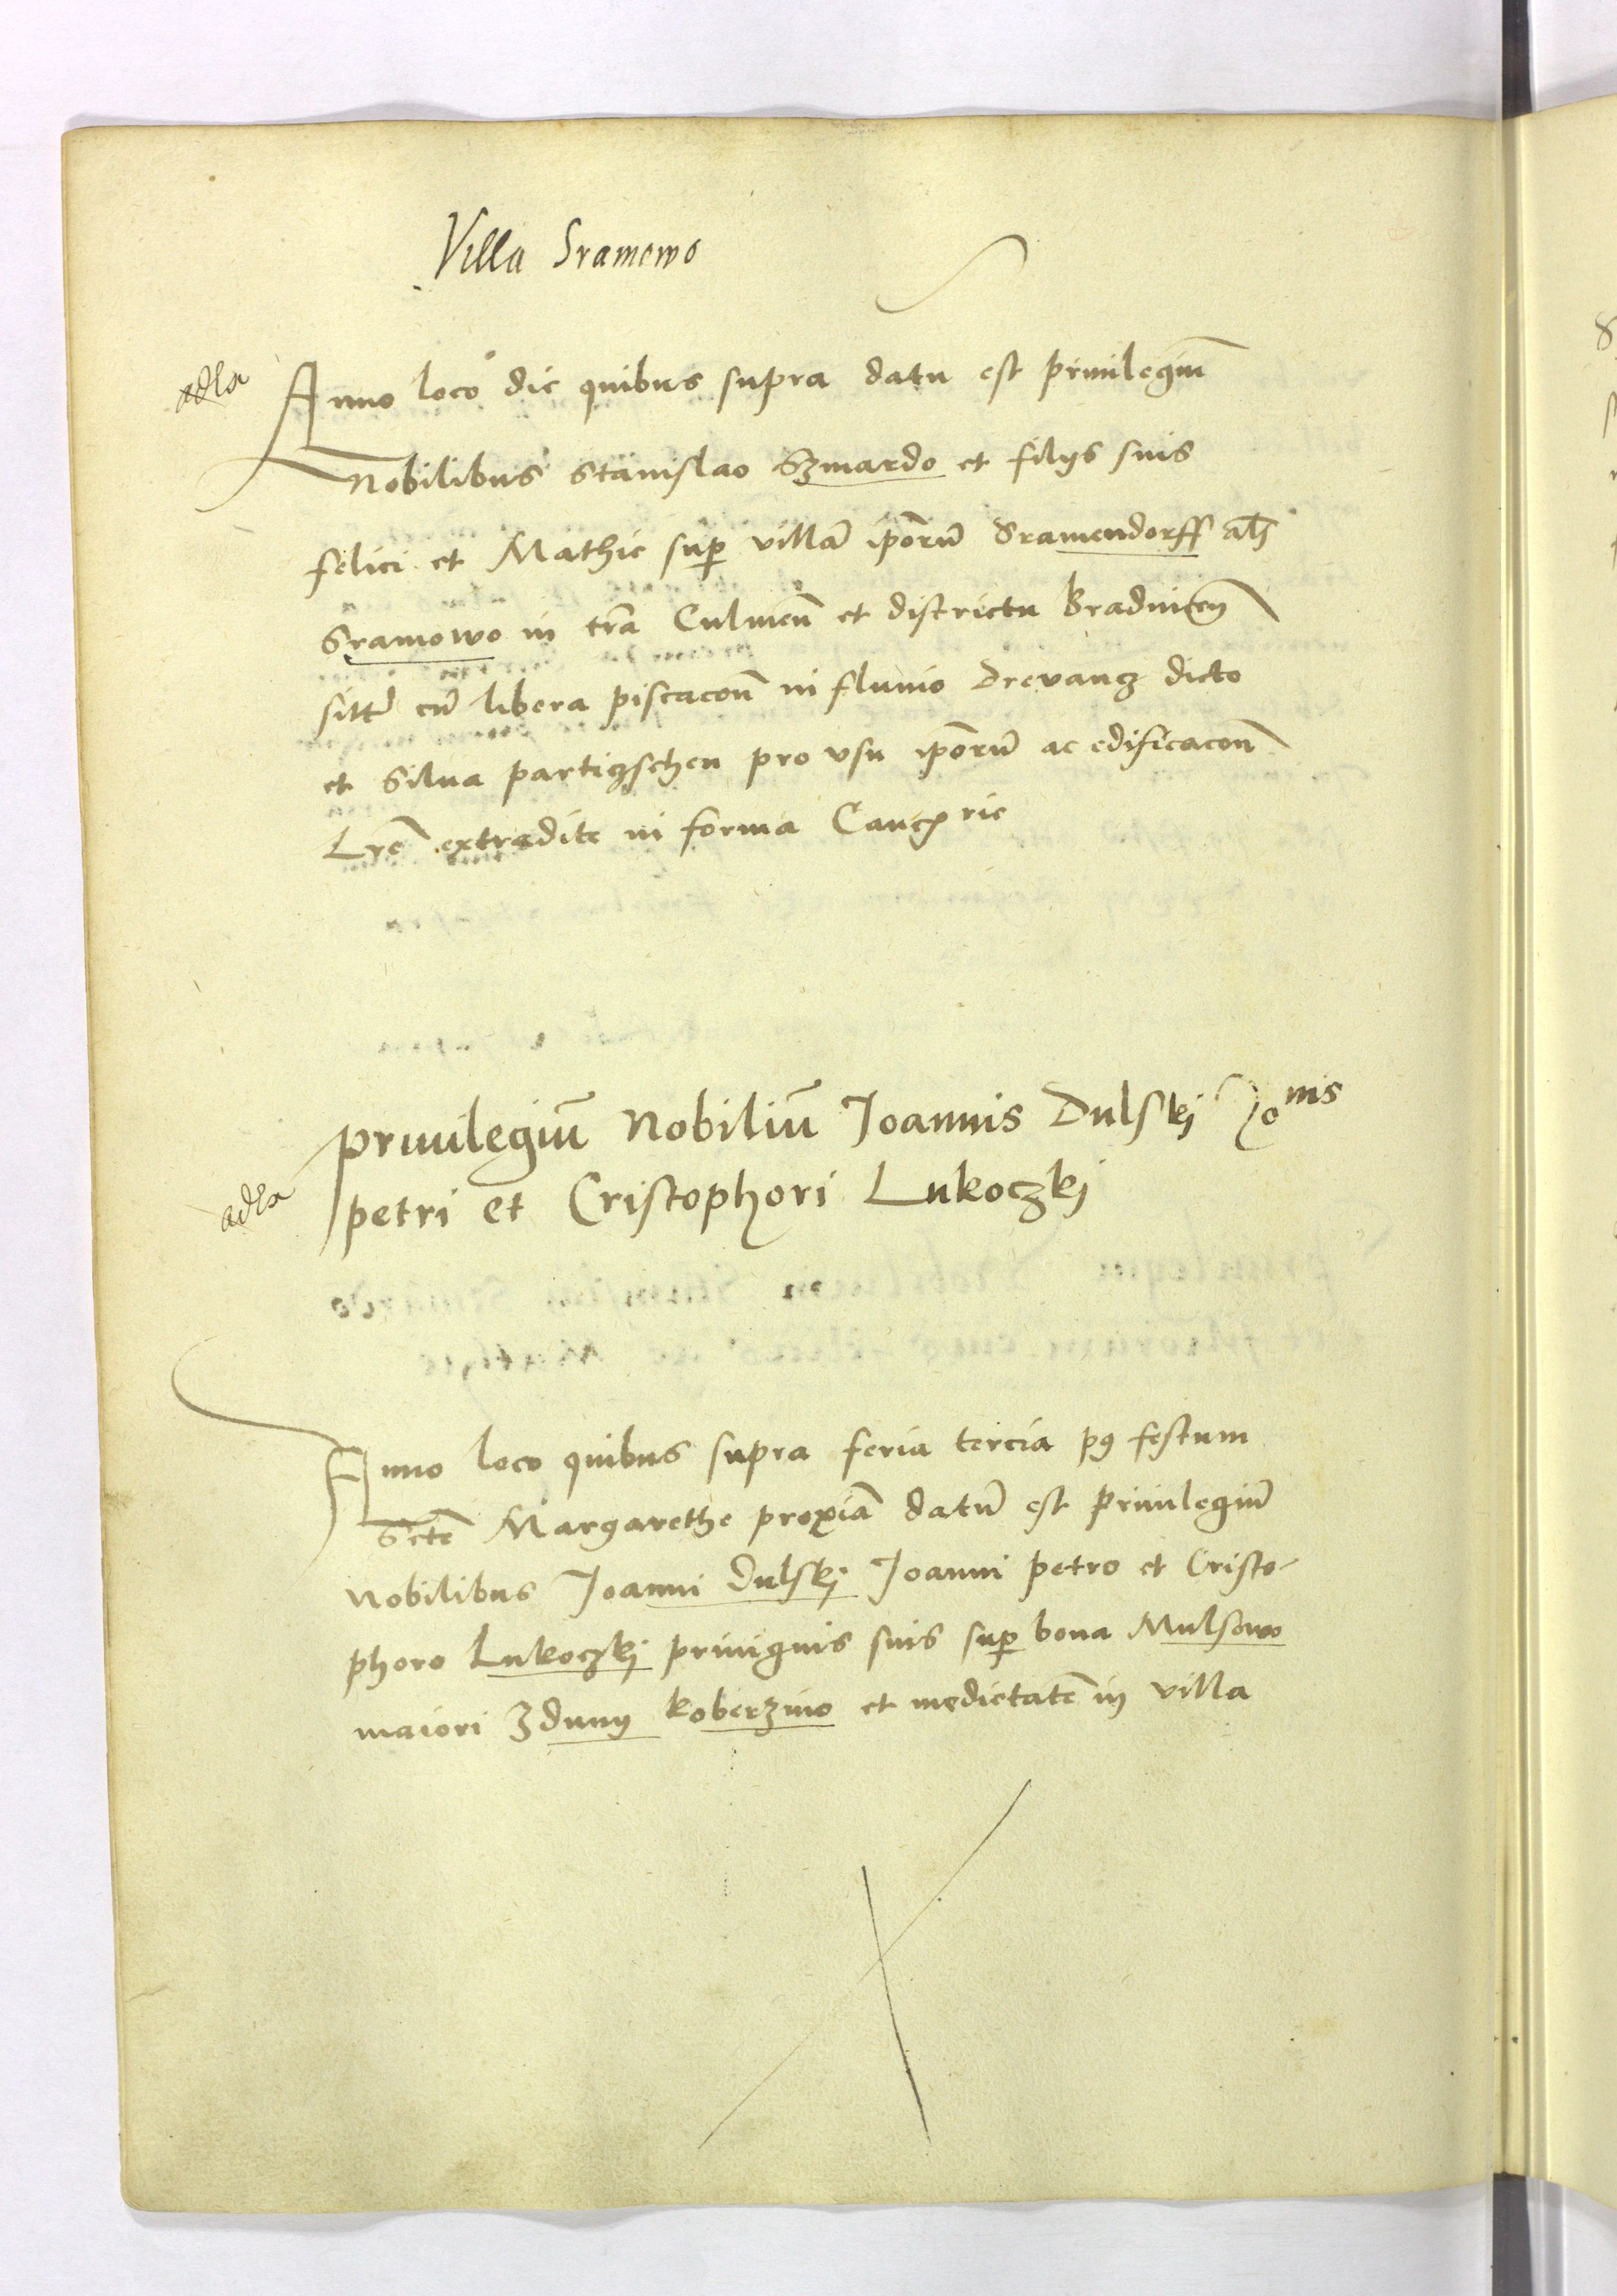 Villa Sramowo
Anno loco die quibus supra datu est priuilegiū
Nobilibus Stanislao Szmardo et filijs suis
felici et Mathie sup villā ipōrū Sramendorff als
Sramowo in trā Culmen̄ et districtu Bradnicen̄
sitt̄ cū libera piscacōn̄ in fluuio Drevancz dicto
et Silua partizschen pro vsu ipōrū ac edificacōn̄
Lr̄e extradite in forma Canc̄rie
adla
Priuilegiū Nobiliū Joannis Dulskj Joannis
petri et Cristophori Lukoczkj
adla
Anno loco quibus supra feria tercia p9 festum
Scte Margarethe proxīā datū est Priuilegiū
Nobilibus Joanni Dulskj Joanni petro et Cristo-
phoro Lukoczkj priuignis suis sup bona Mulsowo
maiori Zduny Koberzino et medietatē in villa